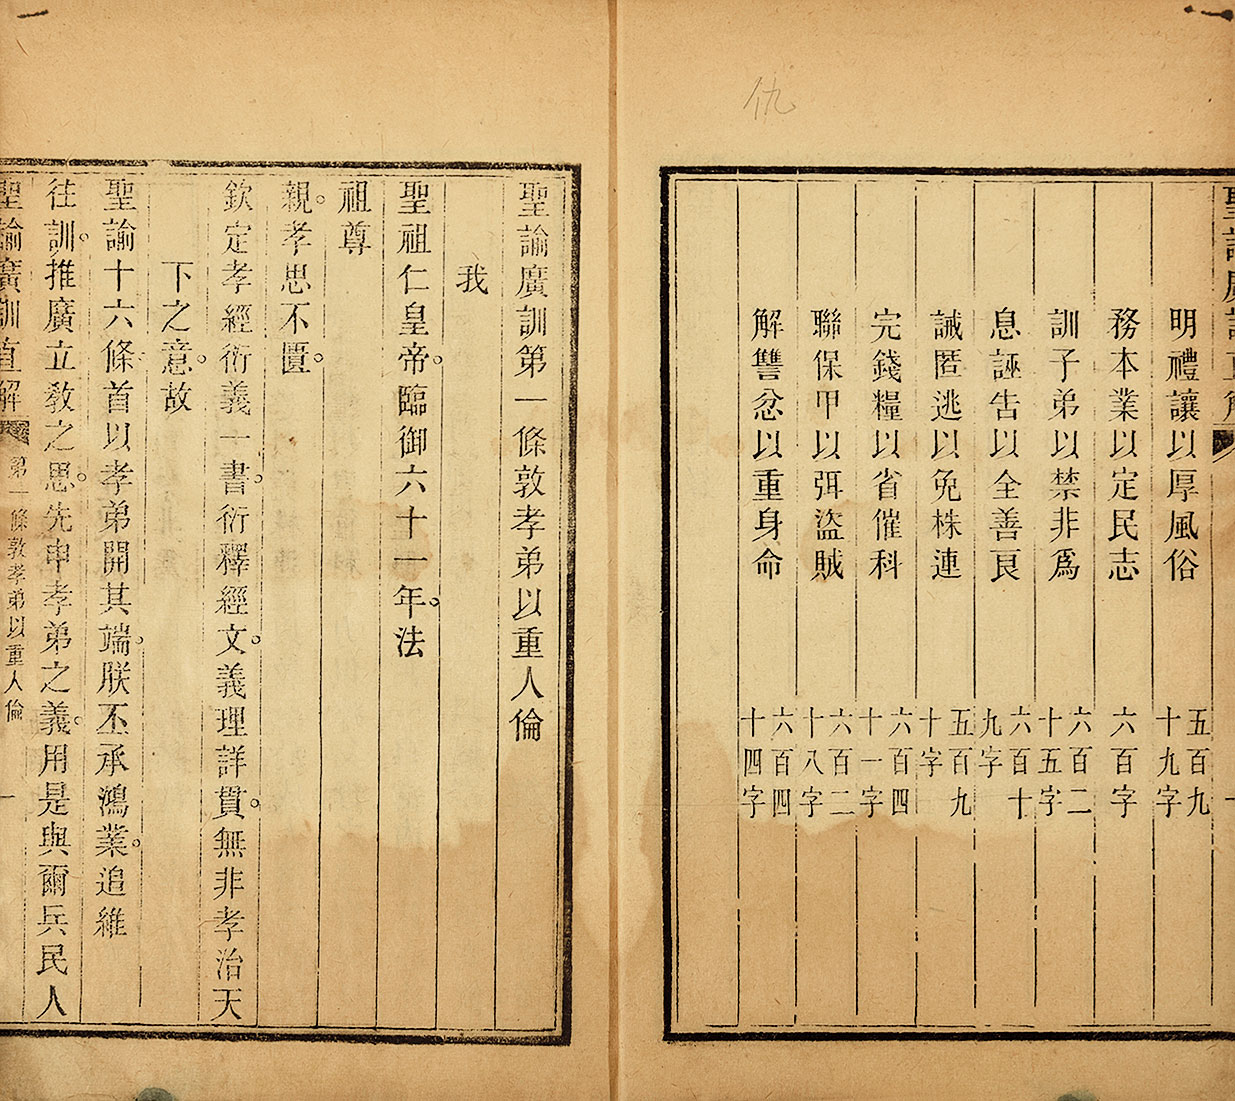 仇
聖諭廣訓直解
明禮讓以厚風俗 五百九十九字
務本業以定民志 六百字
訓子弟以禁非爲 六百二十五字
息誣告以全善良 六百十九字
誡匿逃以免株連 五百九十字
完錢糧以省催科 六百四十一字
聯保甲以弭盜賊 六百二十八字
解讐忿以重身命 六百四十四字
聖諭廣訓第一條敦孝弟以重人倫
我
聖祖仁皇帝。臨御六十一年。法
祖尊
親。孝思不匱。
欽定孝經衍義一書。衍釋經文。義理詳貫。無非孝治天
下之意。故
聖諭十六條首以孝弟開其端。朕丕承鴻業。追維
往訓。推廣立教之思。先申孝弟之義。用是與爾兵民人
聖諭廣訓直解 第一條敦孝弟以重人倫 一